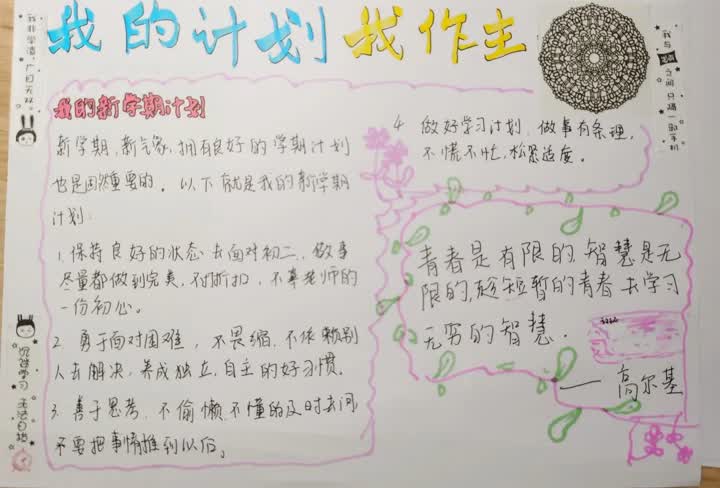 我的计划 我作主
我的新学期计划
新学期,新气象,拥有良好的学期计划
也是固然重要的。以下有就是我的新学期
计划:
1.保持良好的状态去面对初二,做事
尽量都做到完美,不打折扣,不辜老师的
一份初心。
2.勇于面对困难,不畏缩,不依赖别
人去解决,养成独立,自主的好习惯。
3.善于思考,不偷懒,不懂的及时去问
不要把事情推到以后。
4.做好学习计划,做事有条理,
不慌不忙,松紧适度。
青春是有限的,智慧是无
限的,趁短暂的青春去学习
无穷的智慧.
——高尔基
我非学渣,广目无双。
我与
之间只隔一部手机
沉迷学习 无法自拔